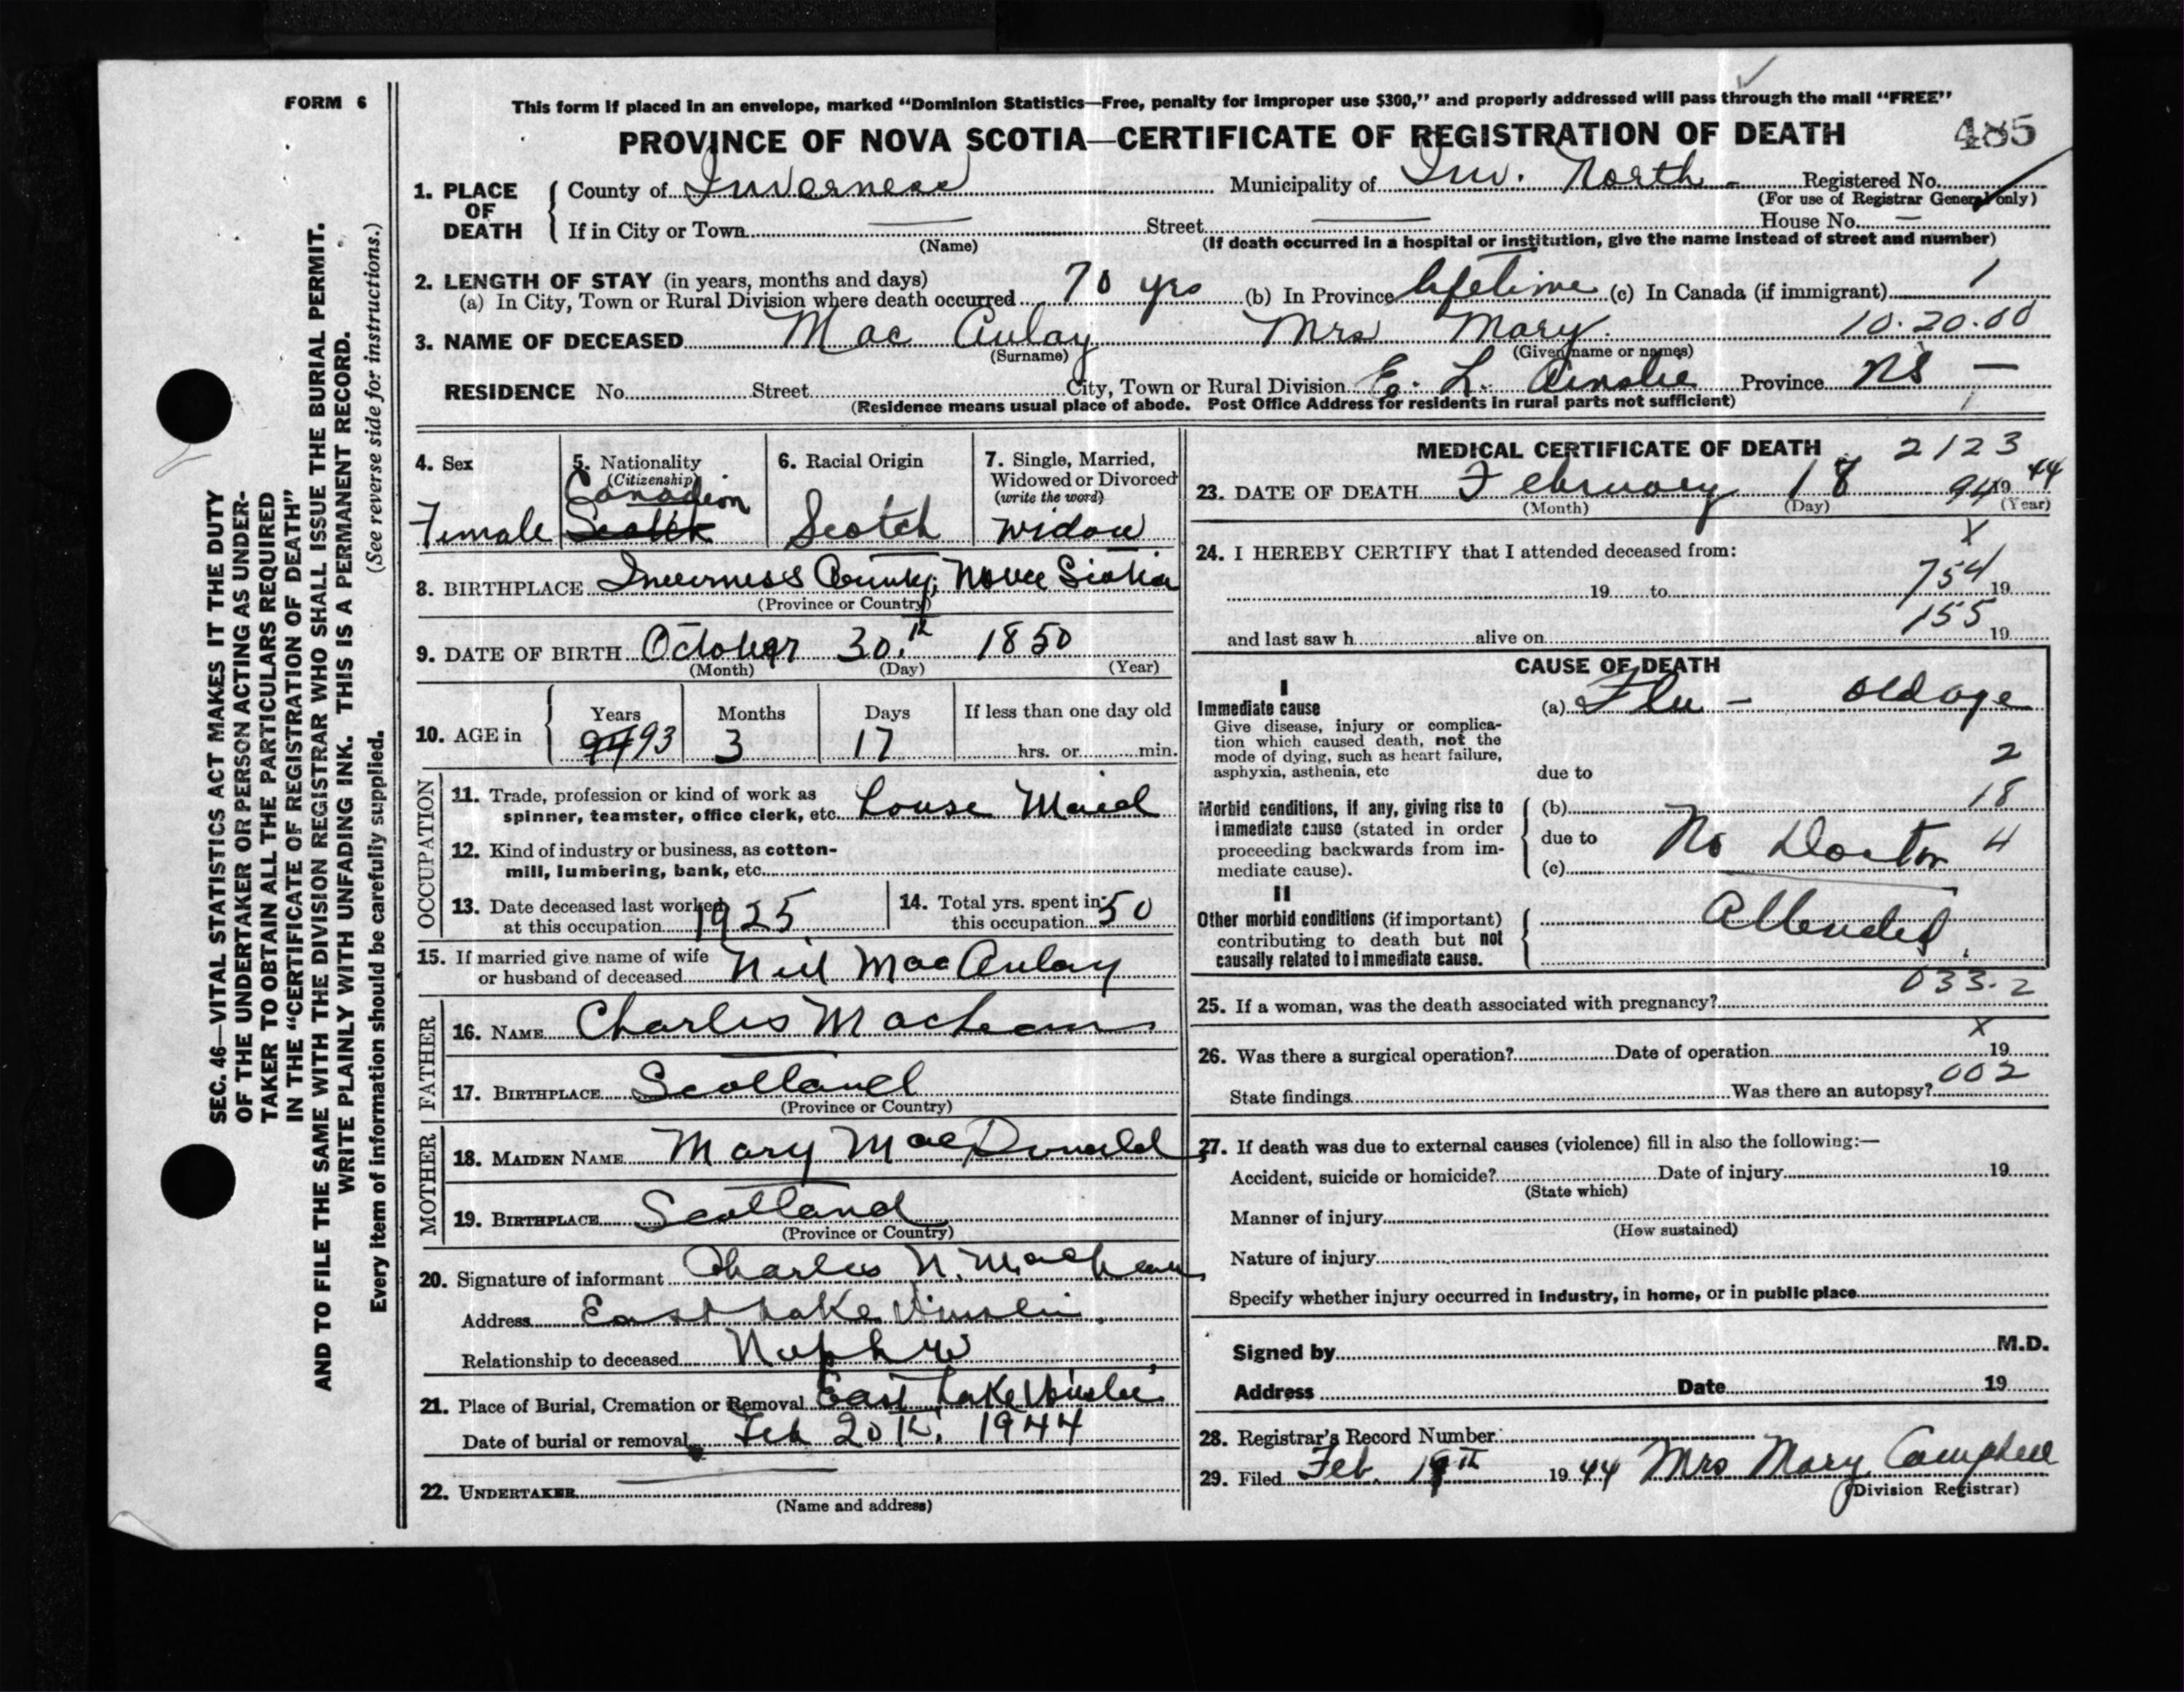 FORM 6
This form if placed in an envelope, marked "Dominion Statistics—Free, penalty for improper use $300," and properly addressed will pass through the mail "FREE"
PROVINCE OF NOVA SCOTIA—CERTIFICATE OF REGISTRATION OF DEATH 485
1. PLACE OF DEATH County of Inverness Municipality of Inv. North - Registered No.
(For use of Registrar General only)
If in City or Town — Street — House No. —
(Name) (If death occurred in a hospital or institution, give the name instead of street and number)
2. LENGTH OF STAY (in years, months and days)
(a) In City, Town or Rural Division where death occurred 70 yrs (b) In Province lifetime (c) In Canada (if immigrant) 1
3. NAME OF DECEASED Mac Aulay Mrs Mary. 10.20.00
(Surname) (Given name or names)
RESIDENCE No. Street City, Town or Rural Division E. L. Ainslie Province NS —
(Residence means usual place of abode. Post Office Address for residents in rural parts not sufficient) 1
4. Sex
Female
5. Nationality
(Citizenship)
Canadian
Scotch
6. Racial Origin
Scotch
7. Single, Married, Widowed or Divorced
(write the word)
Widow
8. BIRTHPLACE Inverness County, Nova Scotia
(Province or Country)
9. DATE OF BIRTH October 30.th 1850
(Month) (Day) (Year)
10. AGE in
Years Months Days If less than one day old
94 93 3 17 hrs. or min.
OCCUPATION
11. Trade, profession or kind of work as
spinner, teamster, office clerk, etc. House Maid
12. Kind of industry or business, as cotton-
mill, lumbering, bank, etc.
13. Date deceased last worked
at this occupation 1925
14. Total yrs. spent in
this occupation 50
15. If married give name of wife
or husband of deceased Neil MacAulay
FATHER
16. NAME Charles MacLean
17. BIRTHPLACE Scotland
(Province or Country)
MOTHER
18. MAIDEN NAME Mary MacDonald
19. BIRTHPLACE Scotland
(Province or Country)
20. Signature of informant Charles N. MacLean
Address East Lake Ainslie
Relationship to deceased Nephew
21. Place of Burial, Cremation or Removal East Lake Ainslie
Date of burial or removal Feb 20th, 1944
22. UNDERTAKER —
(Name and address)
MEDICAL CERTIFICATE OF DEATH 2123
23. DATE OF DEATH February 18 94 1944
(Month) (Day) (Year)
X
24. I HEREBY CERTIFY that I attended deceased from:
19 to 754 19
155
and last saw h alive on 19
CAUSE OF DEATH
I
Immediate cause
Give disease, injury or complica-
tion which caused death, not the
mode of dying, such as heart failure,
asphyxia, asthenia, etc
(a) Flu - old age
2
due to
Morbid conditions, if any, giving rise to
immediate cause (stated in order
proceeding backwards from im-
mediate cause).
(b) 18
due to No Doctor 4
(c)
II
Other morbid conditions (if important)
contributing to death but not
causally related to immediate cause.
Attended.
033.2
25. If a woman, was the death associated with pregnancy?
X
26. Was there a surgical operation? Date of operation 19
002
State findings Was there an autopsy?
27. If death was due to external causes (violence) fill in also the following:—
Accident, suicide or homicide? Date of injury 19
(State which)
Manner of injury
(How sustained)
Nature of injury
Specify whether injury occurred in industry, in home, or in public place
Signed by M.D.
Address Date 19
28. Registrar's Record Number
29. Filed Feb. 19th 1944 Mrs Mary Campbell
(Division Registrar)
SEC. 46—VITAL STATISTICS ACT MAKES IT THE DUTY
OF THE UNDERTAKER OR PERSON ACTING AS UNDER-
TAKER TO OBTAIN ALL THE PARTICULARS REQUIRED
IN THE "CERTIFICATE OF REGISTRATION OF DEATH"
AND TO FILE THE SAME WITH THE DIVISION REGISTRAR WHO SHALL ISSUE THE BURIAL PERMIT.
WRITE PLAINLY WITH UNFADING INK. THIS IS A PERMANENT RECORD.
Every item of information should be carefully supplied. (See reverse side for instructions.)